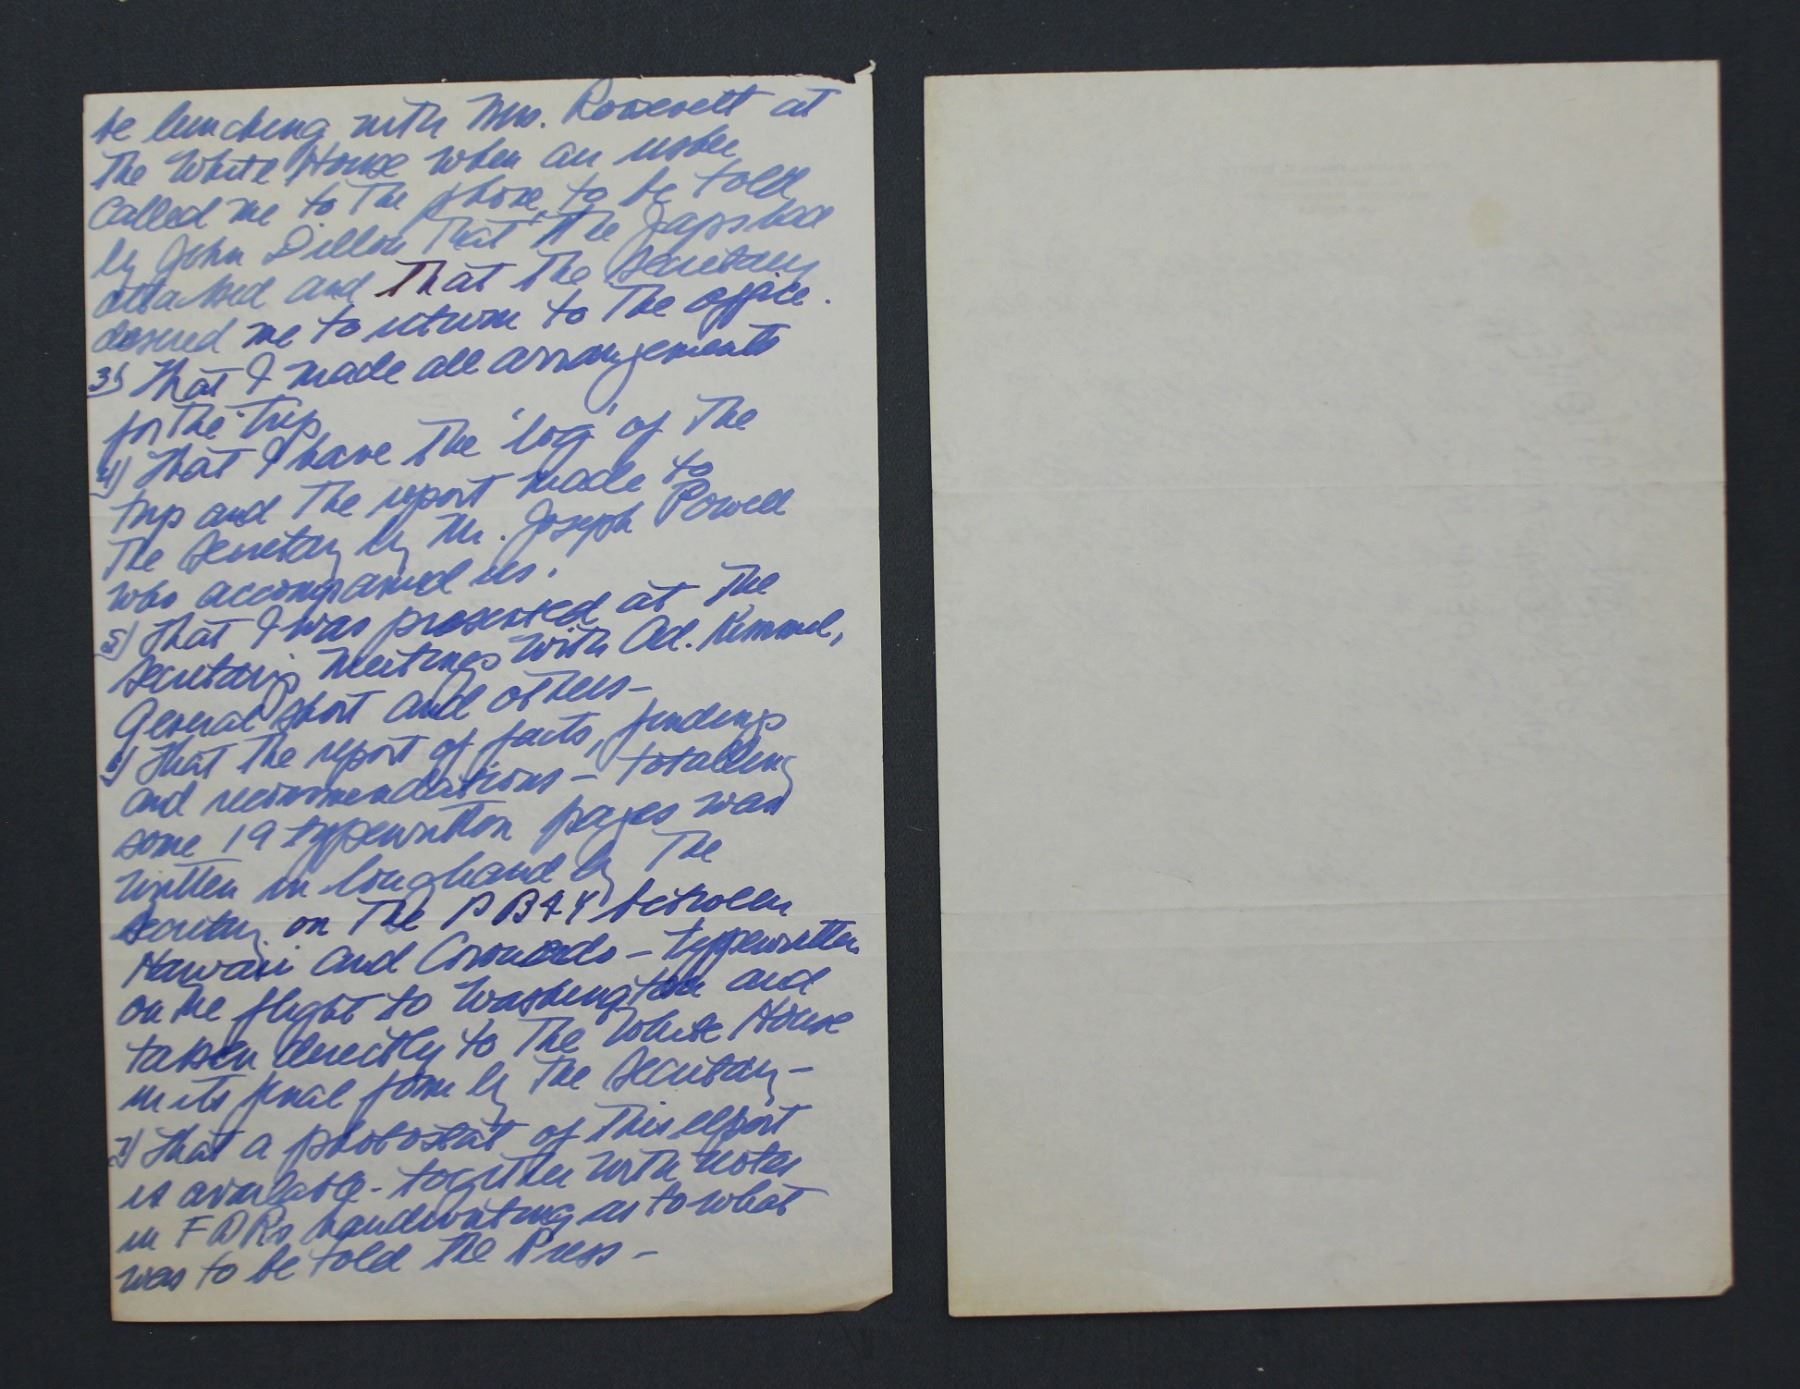 be lunching with Mrs. Roosevelt at
The White House when an usher
called me to The phone to be told
by John Dillon That "The Japs had
attacked and That The Secretary
desired me to return to The office.
3) That I made all arrangements
for The Trip
4) That I have The 'log' of The
Trip and The report made to
The Secretary by Mr. Joseph Powell
who accompanied us.
5) That I was presented at The
Secretary's Meetings with Ad. Kimmel,
General Short and others-
6) That The report of facts, findings
and recommendations - totalling
some 19 typewritten pages was
written in longhand by The
Secretary on The PB4Y between
Hawaii and Coronado - typewritten
on The flight to Washington and
taken directly to The White House
in its final form by The Secretary -
7) That a photostat of This report
is available - together with notes
in FDRs handwriting as to what
was to be told The Press -